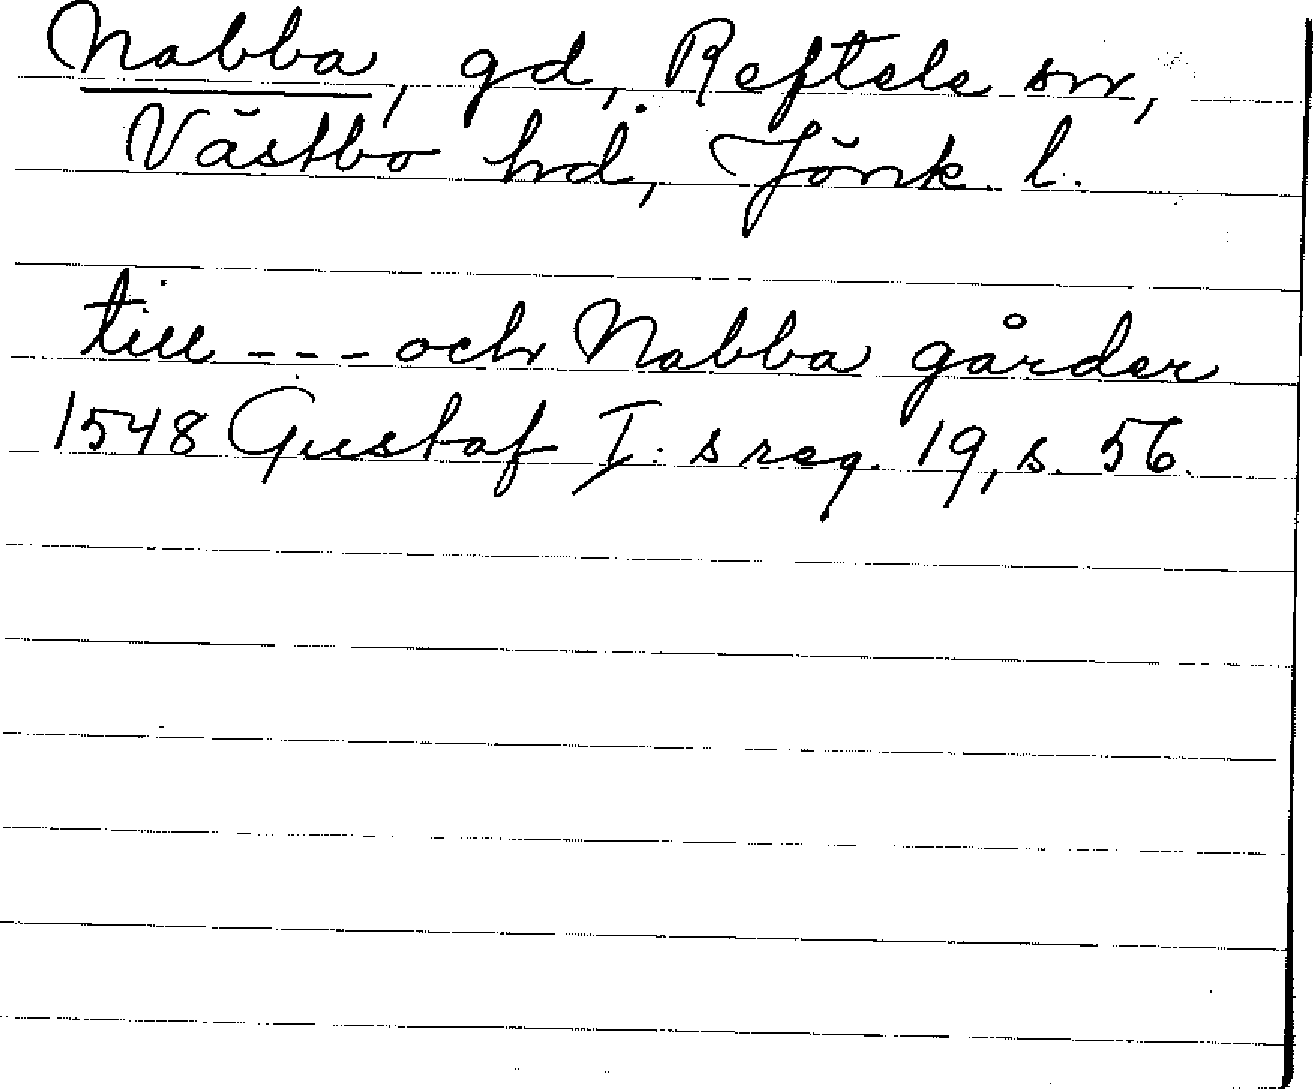 Nabba, gd, Reftele sn,
Västbo hd, Jönk. l.
till --- och Nabba gårder
1548 Gustaf I:s reg. 19, s. 56.